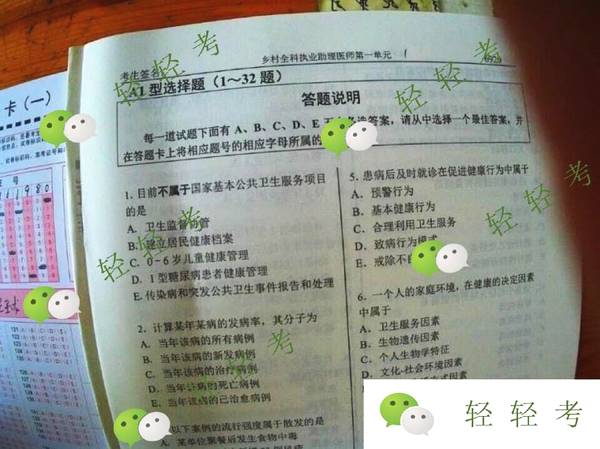 卡（一）
考生签名
乡村全科执业助理医师第一单元
A1型选择题（1～32题）
答题说明
每一道试题下面有 A、B、C、D、E 五个备选答案，请从中选择一个最佳答案，并
在答题卡上将相应题号的相应字母所属的
1. 目前不属于国家基本公共卫生服务项目
的是
A. 卫生监督协管
B. 建立居民健康档案
C. 0-6岁儿童健康管理
D. 1型糖尿病患者健康管理
E. 传染病和突发公共卫生事件报告和处理
2. 计算某年某病的发病率，其分子为
A. 当年该病的所有病例
B. 当年该病的新发病例
C. 当年该病的治疗病例
D. 当年该病的死亡病例
E. 当年该病的已治愈病例
以下案例的流行强度属于散发的是
A. 某单位聚餐后发生食物中毒
5. 患病后及时就诊在促进健康行为中属于
A. 预警行为
B. 基本健康行为
C. 合理利用卫生服务
D. 致病行为模式
E. 戒除不
6. 一个人的家庭环境，在健康的决定因素
中属于
A. 卫生服务因素
B. 生物遗传因素
C. 个人生物学特征
D. 文化-社会环境因素
方式因素
轻轻考
轻轻考
轻轻考
轻轻考
轻轻考
轻轻考